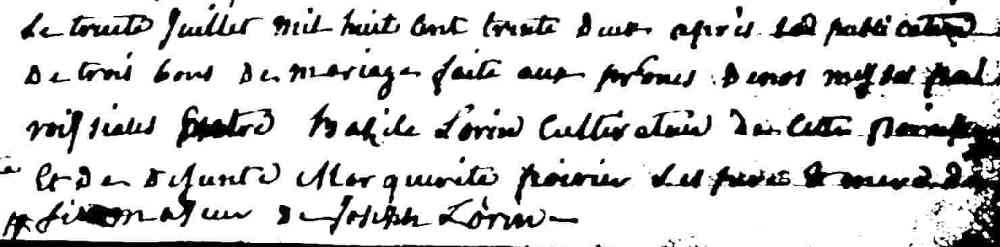 Le trente Juillet mil huit cent trente deux après la publication
De trois bans de mariage faite aux prônes de nos messes paroi
roissiales Entre Bazile Lorin Cultivateur de cette paroisse
Et de défunte Marguerite poirier les pere & mere d
fils majeur de Joseph Lorin